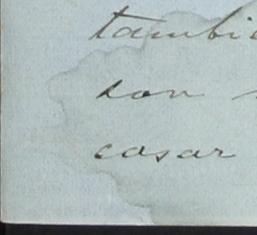 tambié
son
casar